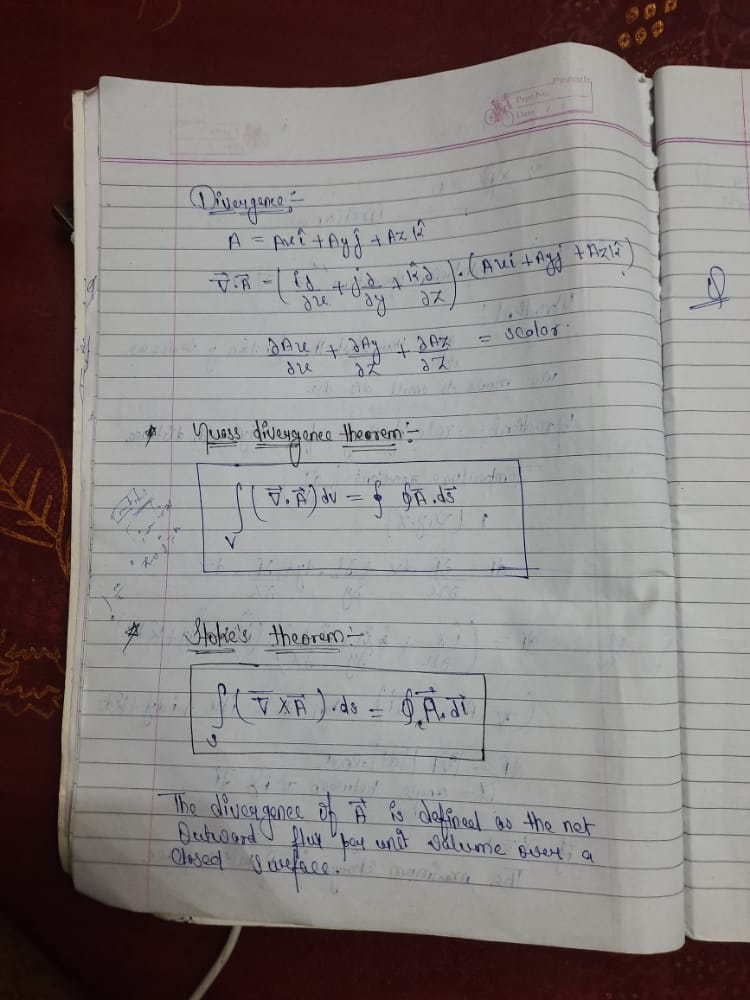 Pinnacle
Page No.
Date / /
Divergence:-
A = Axî + Ayĵ + Azk̂
∇⃗.A⃗ = (î∂/∂x + ĵ∂/∂y + k̂∂/∂z).(Axî + Ayĵ + Azk̂)
∂Ax/∂x + ∂Ay/∂z + ∂Az/∂z = scalar.
* Guass divergence theorem:-
∫V (∇⃗.A⃗) dv = ∮ A⃗.ds⃗
* Stoke's theorem:-
∫s (∇⃗×A⃗).ds = ∮c A⃗.dl⃗
The divergence of A⃗ is defined as the net
Outward flux per unit volume over a
closed surface.